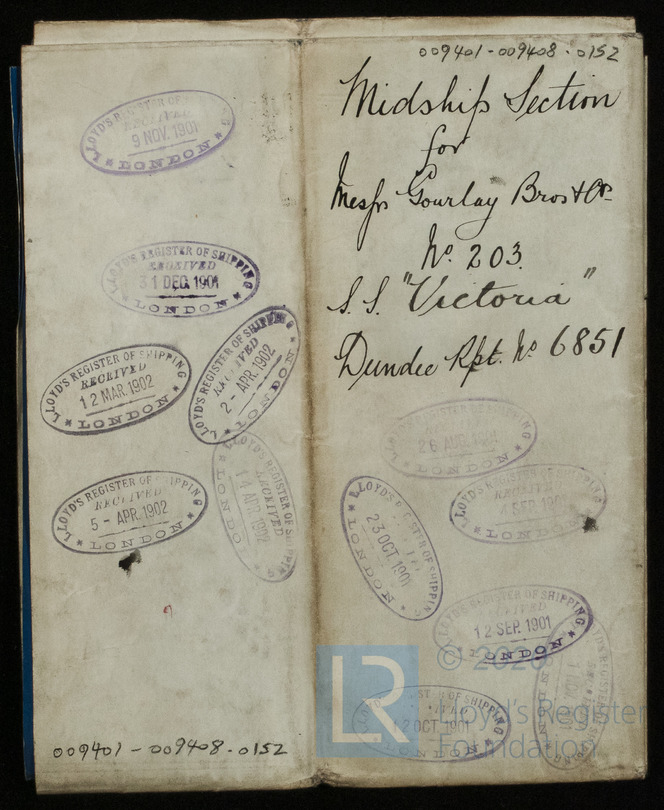 009401-009408-0152
Midship Section
for
Messrs Gourlay Bros & Co.
No. 203.
S.S. "Victoria"
Dundee Rpt. No 6851
LLOYD'S REGISTER OF
RECEIVED
9 NOV. 1901
LONDON
LLOYD'S REGISTER OF SHIPPING
RECEIVED
31 DEC. 1901
LONDON
LLOYD'S REGISTER OF SHIPPING
RECEIVED
12 MAR. 1902
LONDON
LLOYD'S REGISTER OF SHIPPING
RECEIVED
2- APR. 1902
LONDON
LLOYD'S REGISTER OF SHIPPING
RECEIVED
5- APR. 1902
LONDON
LLOYD'S REGISTER OF SHIPPING
RECEIVED
14 APR. 1902
LONDON
LLOYD'S REGISTER OF SHIPPING
RECEIVED
26 AUG. 1901
LONDON
LLOYD'S REGISTER OF SHIPPING
RECEIVED
SEP. 1901
LONDON
LLOYD'S REGISTER OF SHIPPING
23 OCT. 1901
LONDON
LLOYD'S REGISTER OF SHIPPING
RECEIVED
12 SEP. 1901
LONDON
REGISTER OF SHIPPING
NOV.
LONDON
OF SHIPPING
OCT. 1901
LONDON
LR
© 202
Lloyd's Register
Foundation
009401-009408-0152